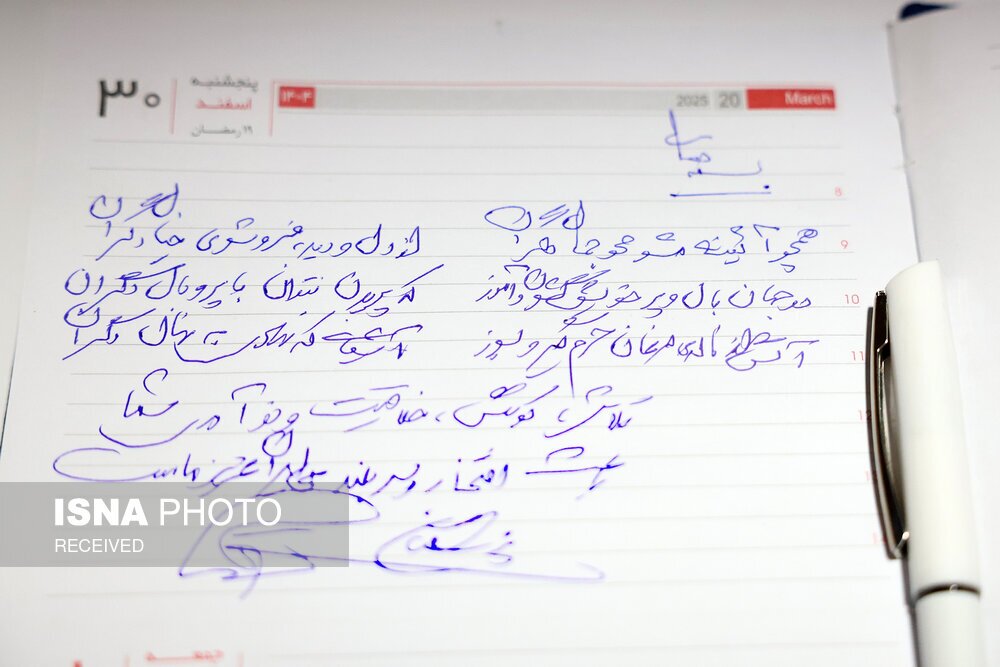 ۳۰ پنجشنبه ۱۴۰۳ 2025 20 March
اسفند
۱۹ رمضان
بسمه تعالی
8
همچو آئینه مشو محو جمال دگران از دل و دیده فرو شوی خیال دگران
9
در جهان بال و پر خویش گشودن آموز که پریدن نتوان با پر و بال دگران
10
آتش از ناله مرغان حرم گیر و بسوز آشیانی که نهادی به نهال دگران
11
تلاش، کوشش، خلاقیت و نوآوری شما
12
باعث افتخار و سربلندی ایران عزیز ماست
ISNA PHOTO
RECEIVED